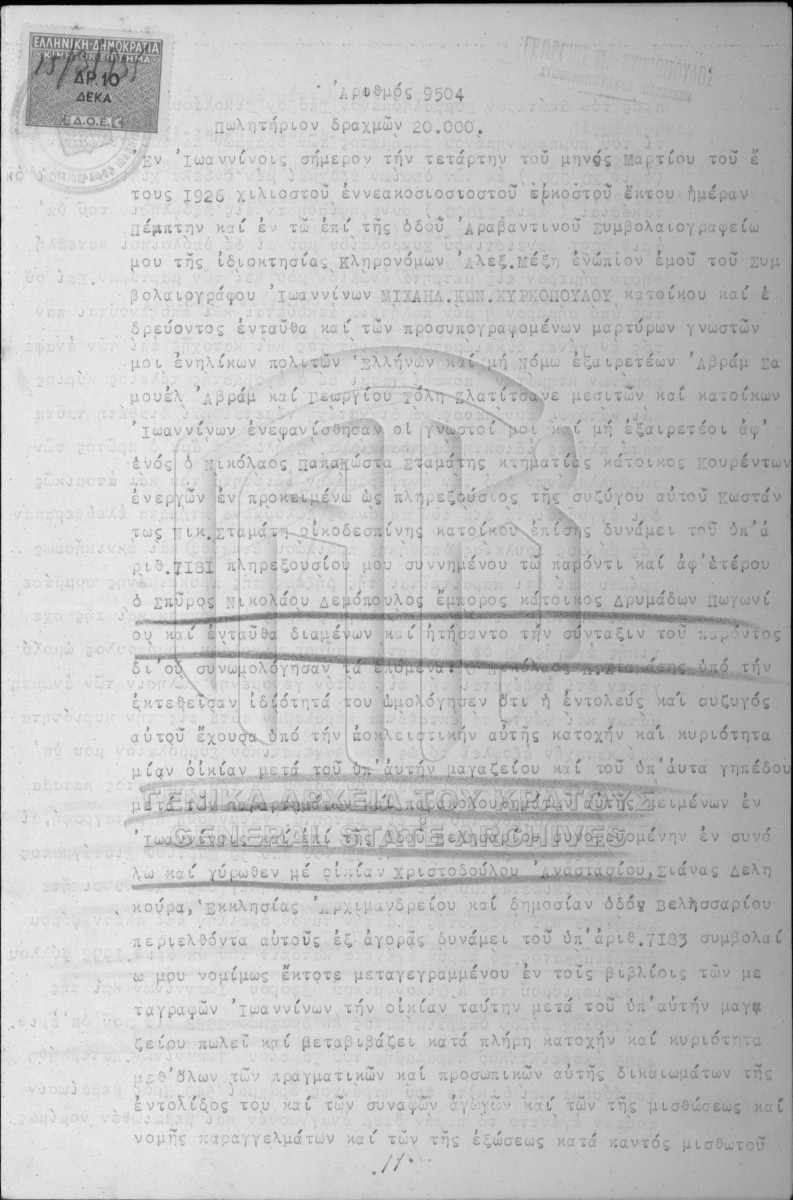 ΕΛΛΗΝΙΚΗ ΔΗΜΟΚΡΑΤΙΑ
ΔΡ.10
ΔΕΚΑ
Δ.Ο.Ε.
Ἀριθμός 9504
Πωλητήριον δραχμῶν 20.000.
Ἐν Ἰωαννίνοις σήμερον τήν τετάρτην τοῦ μηνός Μαρτίου τοῦ ἔ
τους 1926 χιλιοστοῦ ἐννεακοσιοσιοστοῦ εἰκοστοῦ ἕκτου ἡμέραν
Πέμπτην καί ἐν τῶ ἐπί τῆς ὁδοῦ Ἀραβαντινοῦ Συμβολαιογραφείω
μου τῆς ἰδιοκτησίας Κληρονόμων Ἀλεξ.Μέξη ἐνώπιον ἐμοῦ τοῦ Συμ
βολαιογράφου Ἰωαννίνων ΜΙΧΑΗΛ.ΚΩΝ.ΚΥΡΚΟΠΟΥΛΟΥ κατοίκου καί ἐ
δρεύοντος ἐνταῦθα καί τῶν προσυπογραφομένων μαρτύρων γνωστῶν
μοι ἐνηλίκων πολιτῶν Ἑλλήνων καί μή Νόμω ἐξαιρετέων Ἀβράμ Σα
μουέλ Ἀβράμ καί Γεωργίου Τόλη Σλατίτσανε μεσιτῶν καί κατοίκων
Ἰωαννίνων ἐνεφανίσθησαν οἱ γνωστοί μοι καί μή ἐξαιρετέοι ἀφ'
ἑνός ὁ Νικόλαος ΠαπαΚώστα Σταμάτης κτηματίας κάτοικος Κουρέντων
ἐνεργῶν ἐν προκειμένω ὡς πληρεξούσιος τῆς συζύγου αὐτοῦ Κωστάν
τως Νικ.Σταμάτη οἰκοδεσπίνης κατοίκου ἐπίσης δυνάμει τοῦ ὑπ'ἀ
ριθ.7181 πληρεξουσίου μου συννημένου τῶ παρόντι καί ἀφ'ἑτέρου
ὁ Σπῦρος Νικολάου Δεμόπουλος ἔμπορος κάτοικος Δρυμάδων Πωγωνί
ου καί ἐνταῦθα διαμένων καί ἠτήσαντο τήν σύνταξιν τοῦ παρόντος
δι'οὗ συνωμολόγησαν τά ἑπόμενα: Ὁ Νικόλαος Κ.Σταμάτης ὑπό τήν
ἐκτεθεῖσαν ἰδιότητά του ὡμολόγησεν ὅτι ἡ ἐντολεύς καί συζυγός
αὐτοῦ ἔχουσα ὑπό τήν ἀποκλειστικήν αὐτῆς κατοχήν καί κυριότητα
μίαν οἰκίαν μετά τοῦ ὑπ'αὐτήν μαγαζείου καί τοῦ ὑπ'αὐτα γηπέδου
μετά τῶν παραρτημάτων καί παρακολουθημάτων αὐτῆς κειμένων ἐν
Ἰωαννίνοις καί ἐπί τῆς ὁδοῦ Βελησαρίου συνορευομένην ἐν συνό
λω καί γύρωθεν μέ οἰκίαν Χριστοδούλου Ἀναστασίου, Σιάνας Δελη
κούρα, Ἐκκλησίας Ἀρχιμανδρείου καί δημοσίαν ὁδόν Βελησσαρίου
περιελθόντα αὐτούς ἐξ ἀγορᾶς δυνάμει τοῦ ὑπ'ἀριθ.7183 συμβολαί
ω μου νομίμως ἔκτοτε μεταγεγραμμένου ἐν τοῖς βιβλίοις τῶν με
ταγραφῶν Ἰωαννίνων τήν οἰκίαν ταύτην μετά τοῦ ὑπ'αὐτήν μαγα
ζείου πωλεῖ καί μεταβιβάζει κατά πλήρη κατοχήν καί κυριότητα
μεθ'ὅλων τῶν πραγματικῶν καί προσωπικῶν αὐτῆς δικαιωμάτων τῆς
ἐντολίδος του καί τῶν συναφῶν ἀγωγῶν καί τῶν τῆς μισθώσεως καί
νομῆς παραγγελμάτων καί τῶν τῆς ἐξώσεως κατά παντός μισθωτοῦ
ΓΕΝΙΚΑ ΑΡΧΕΙΑ ΤΟΥ ΚΡΑΤΟΥΣ
GENERAL STATE ARCHIVES